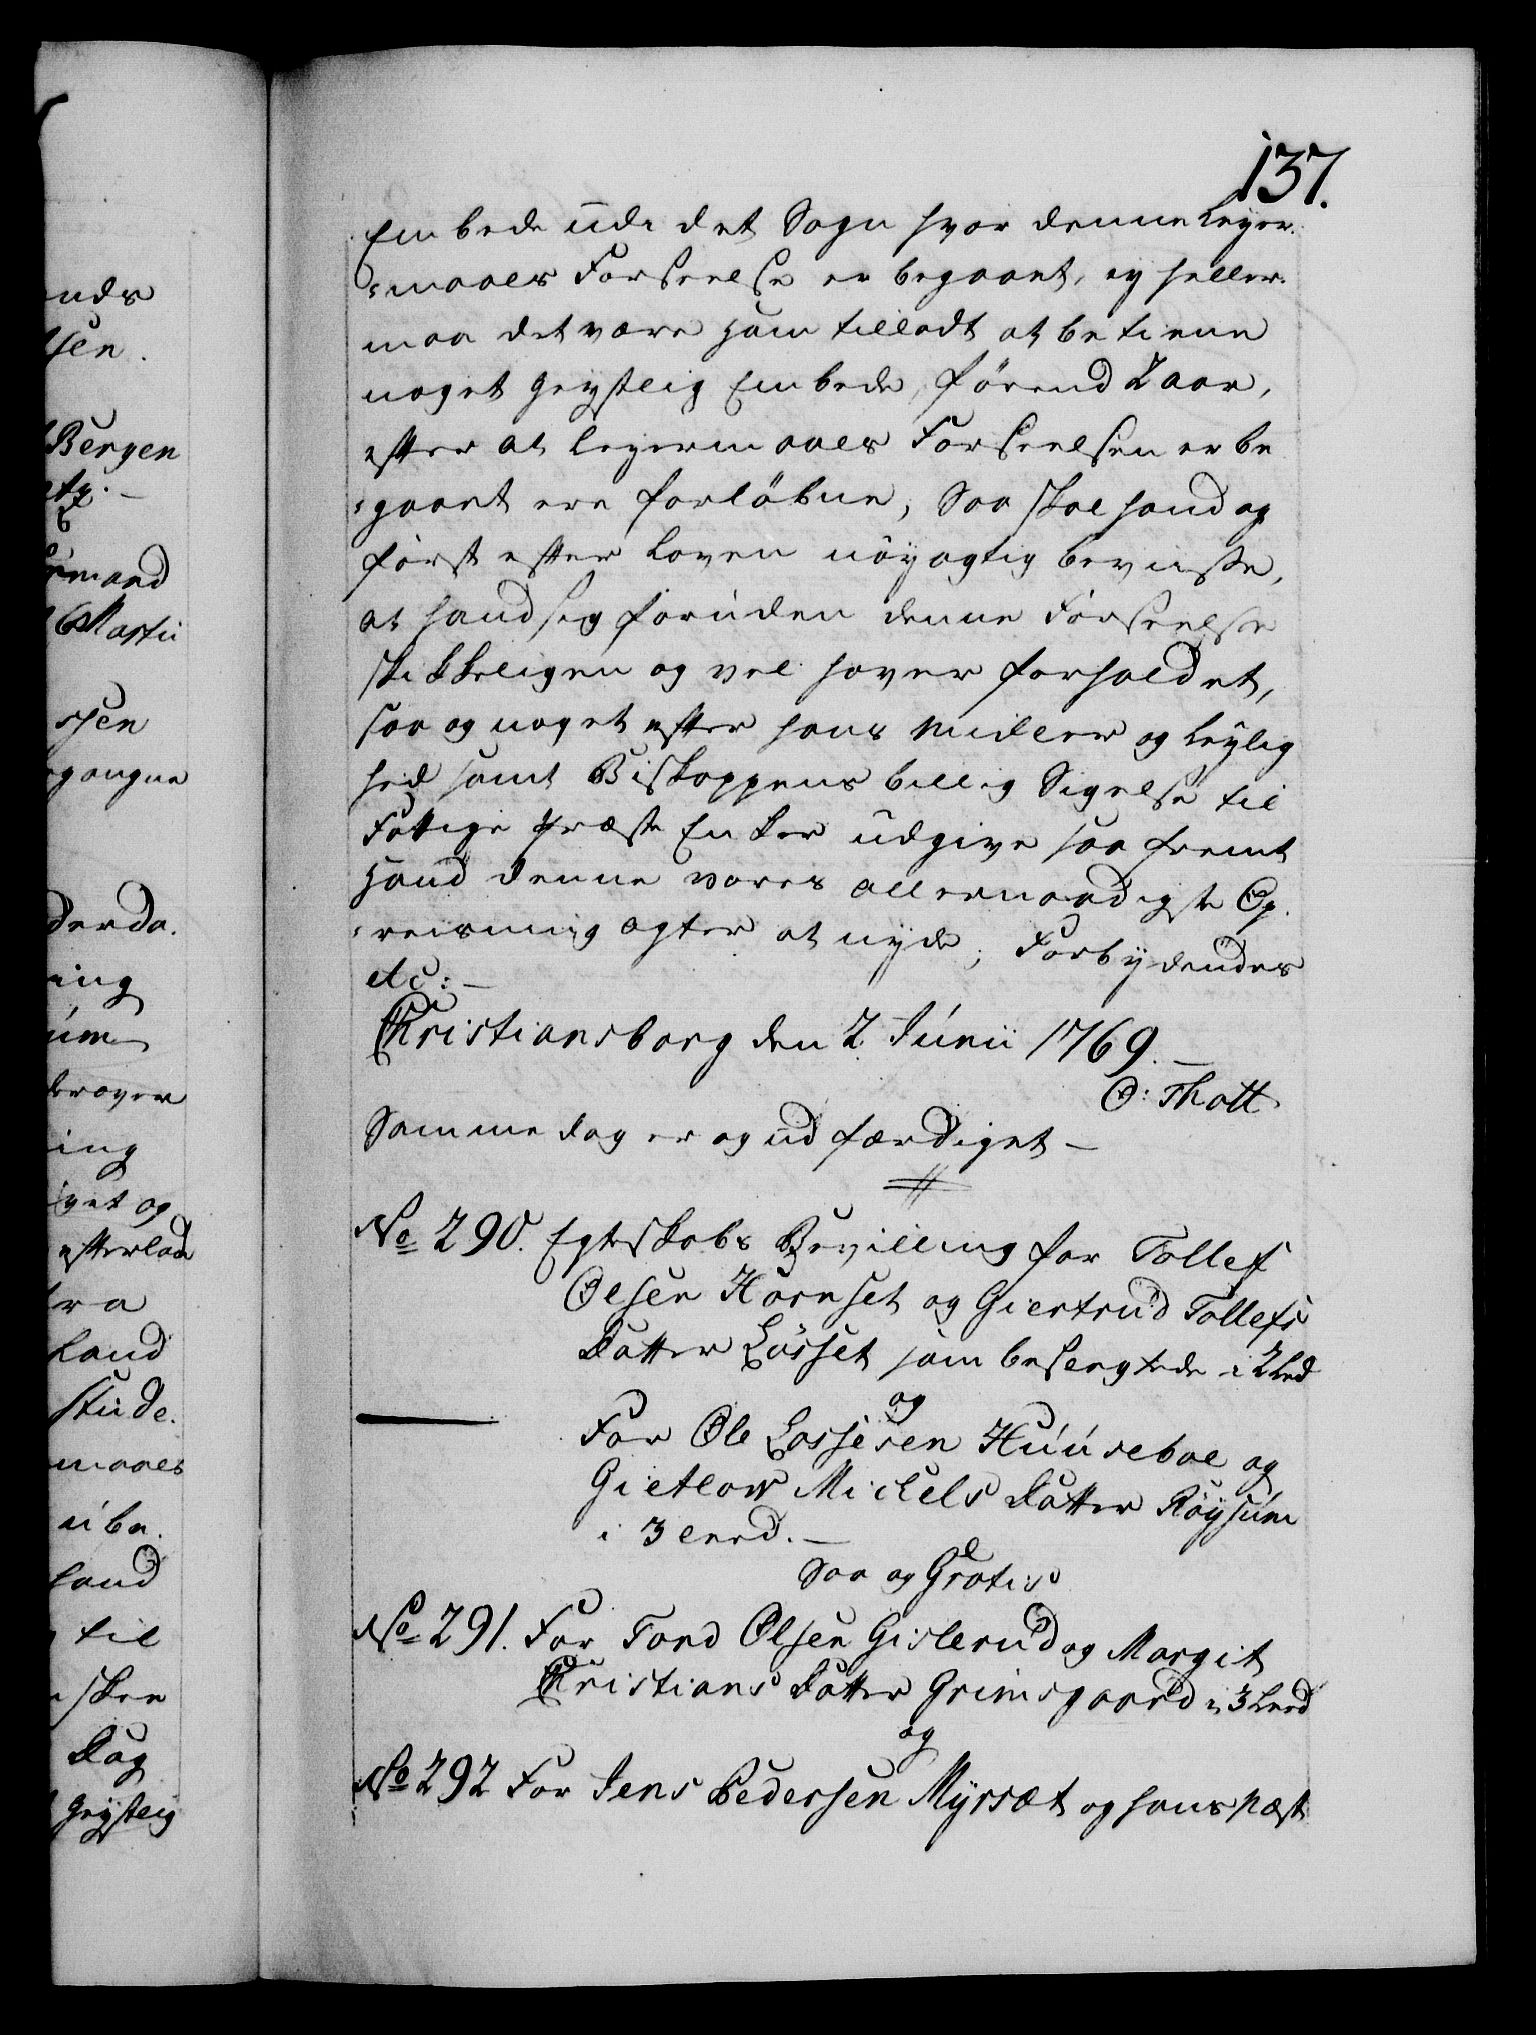 137.
Embede udi det Sogn hvor denne Leyer-
=maals Forseelse er begaaet, ey heller
maa det være ham tilladt at betiene
noget Geystlig Embede, förend 2 aar,
efter at Leyermaals Forseelsen er be
=gaaet ere forløbne, Saa skal hand og
först efter Loven nöyagtig beviisse,
at hand sig foruden denne Forseelse
skikkeligen og vel haver forholdet,
saa og noget efter hans Midler og Leylig
hed samt Biskoppens billig Sigelse til
Fattige Præste Enker udgive saa fremt
Hand denne vores allernaadigste Op-
=reisning agter at nyde; Forbydendes
etc: —
Christiansborg den 2 Junii 1769. —
O: Thott
Samme dag er og udfærdiget —
No 290. Egteskabs Bevilling for Tollef
Olsen Hornset og Giertrud Tollefs
Datter Lösset som beslægtede i 2 Led
og
For Ole Lassesen Huuseboe og
Gietlow Michels Datter Röysum
i 3 Leed. —
Saa og Gratis
No 291. For Tord Olsen Gislerud og Margit
Christians Datter Grimsgaard i 3 Leed
og
No 292 For Jens Pedersen Myrsæt og hans næst
nds
sen.
Bergen
mand
Martii
ssen
gangne
derda.
ing
um
derover
ing
ivet og
efterlad
ra
Land
stude.
maals
hand
til
isken
Dag
Geystlig